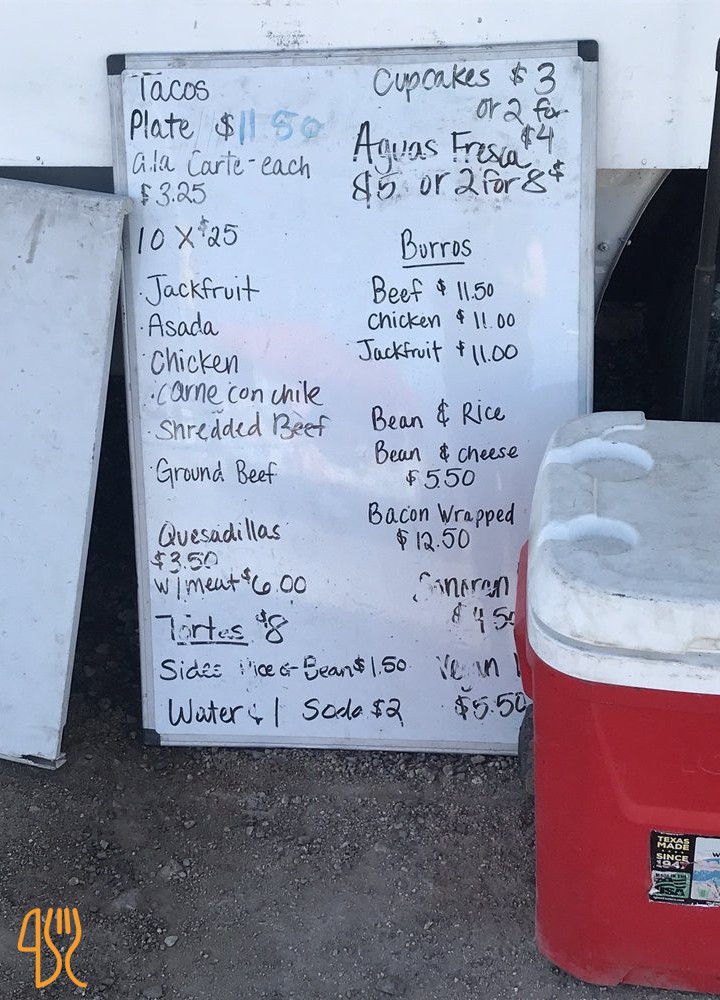 Tacos
Plate $11 50
a.la Carte - each
$3.25
10 X $25
· Jackfruit
· Asada
· Chicken
· Carne con chile
· Shredded Beef
· Ground Beef
Quesadillas
$3.50
w/meat $6.00
Tortas $8
Sides Rice & Bean $1.50
Water $1 Soda $2
Cupcakes $3
or 2 for
$4
Aguas Fresca
$5 or 2 for 8$
Burros
Beef $11.50
Chicken $11.00
Jackfruit $11.00
Bean & Rice
Bean & cheese
$5.50
Bacon Wrapped
$12.50
Sonoran
$4 50
Vegan
$5.50
TEXAS
MADE
SINCE
1947
MADE IN THE
USA